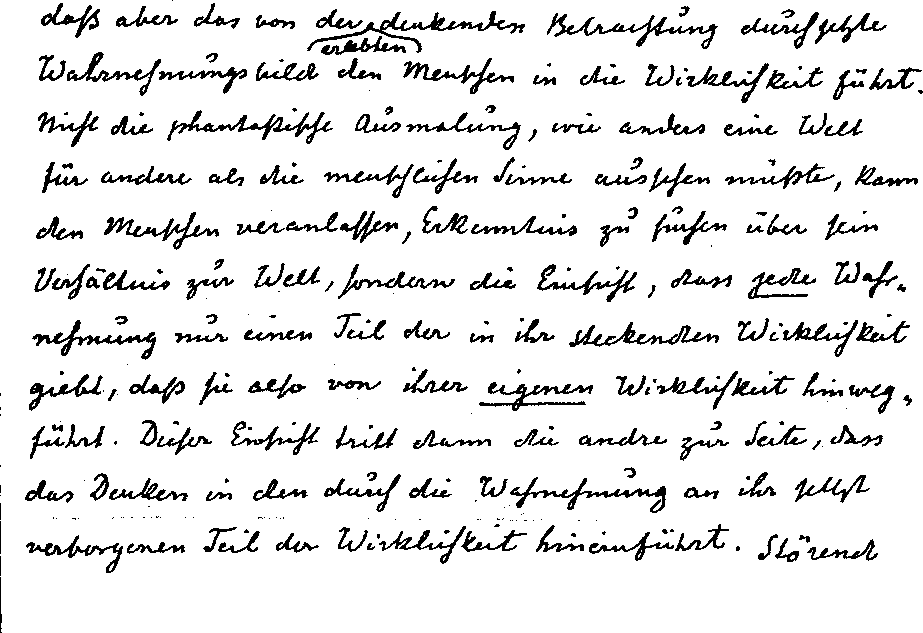 daß aber das von der denkenden Betrachtung durchsetzte
erlebten
Wahrnehmungsbild den Menschen in die Wirklichkeit führt.
Nicht die phantastische Ausmalung, wie anders eine Welt
für andere als die menschlichen Sinne aussehen müßte, kann
den Menschen veranlassen, Erkenntnis zu suchen über sein
Verhältnis zur Welt, sondern die Einsicht, dass jede Wahr-
nehmung nur einen Teil der in ihr steckenden Wirklichkeit
giebt, daß sie also von ihrer eigenen Wirklichkeit hinweg-
führt. Dieser Einsicht tritt dann die andre zur Seite, dass
das Denken in den durch die Wahrnehmung an ihr selbst
verborgenen Teil der Wirklichkeit hineinführt. Störend